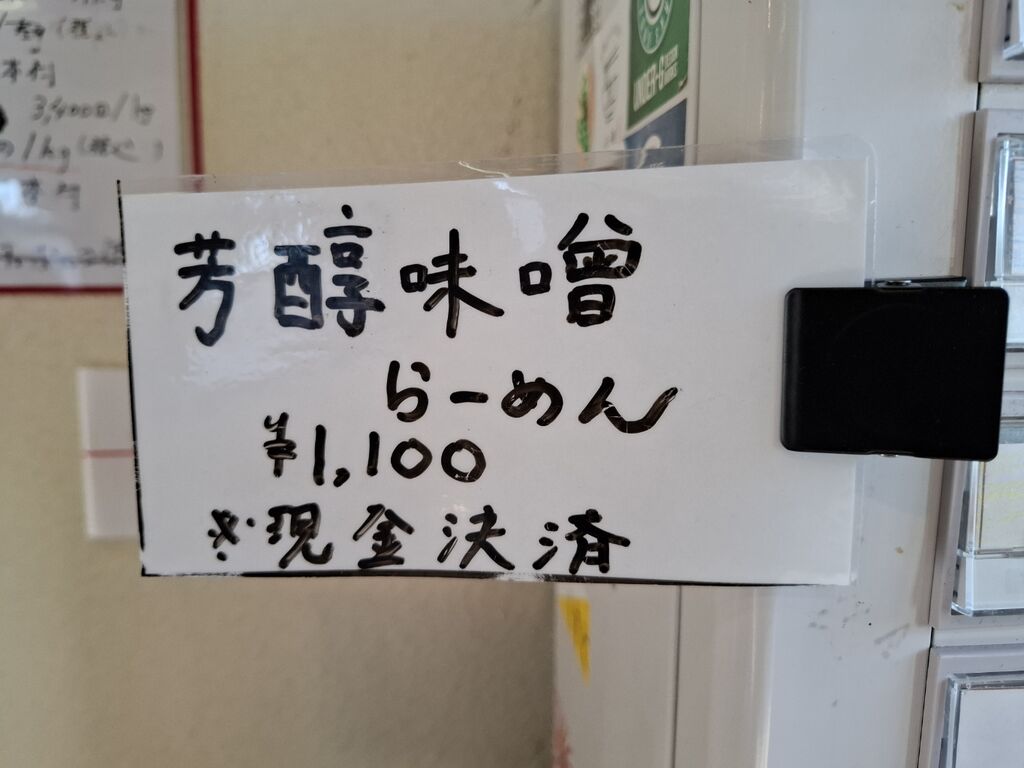 本利
3,4000/kg
芳醇味噌
らーめん
¥1,100
※現金決済
UNDER-G